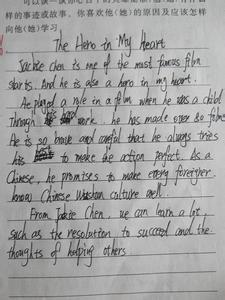 的事迹或故事。你喜欢他(她)的原因及应该怎样
向他(她)学习
The Hero in My Heart
Jackie Chen is one of the most famous film
stars. And he is also a hero in my heart.
He played a role in a film when he was a child
Through his work. he has made over 80 films
He is so brave and careful that he always tries
his best to make the action perfect. As a
Chinese, he promises to make every foreigner
know Chinese culture well.
From Jackie Chen, we can learn a lot,
such as the resolution to succeed and the
thoughts of helping others.